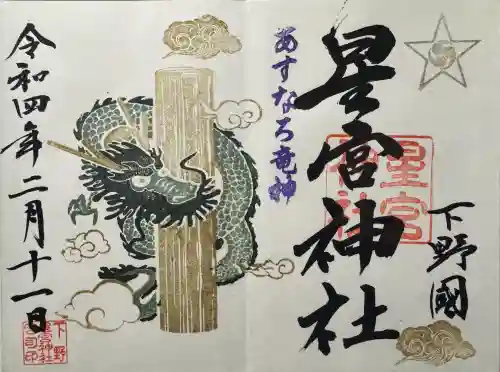 下野國
星宮神社
あすなろ竜神
令和四年二月十一日
星宮
神社
下野
星宮神社